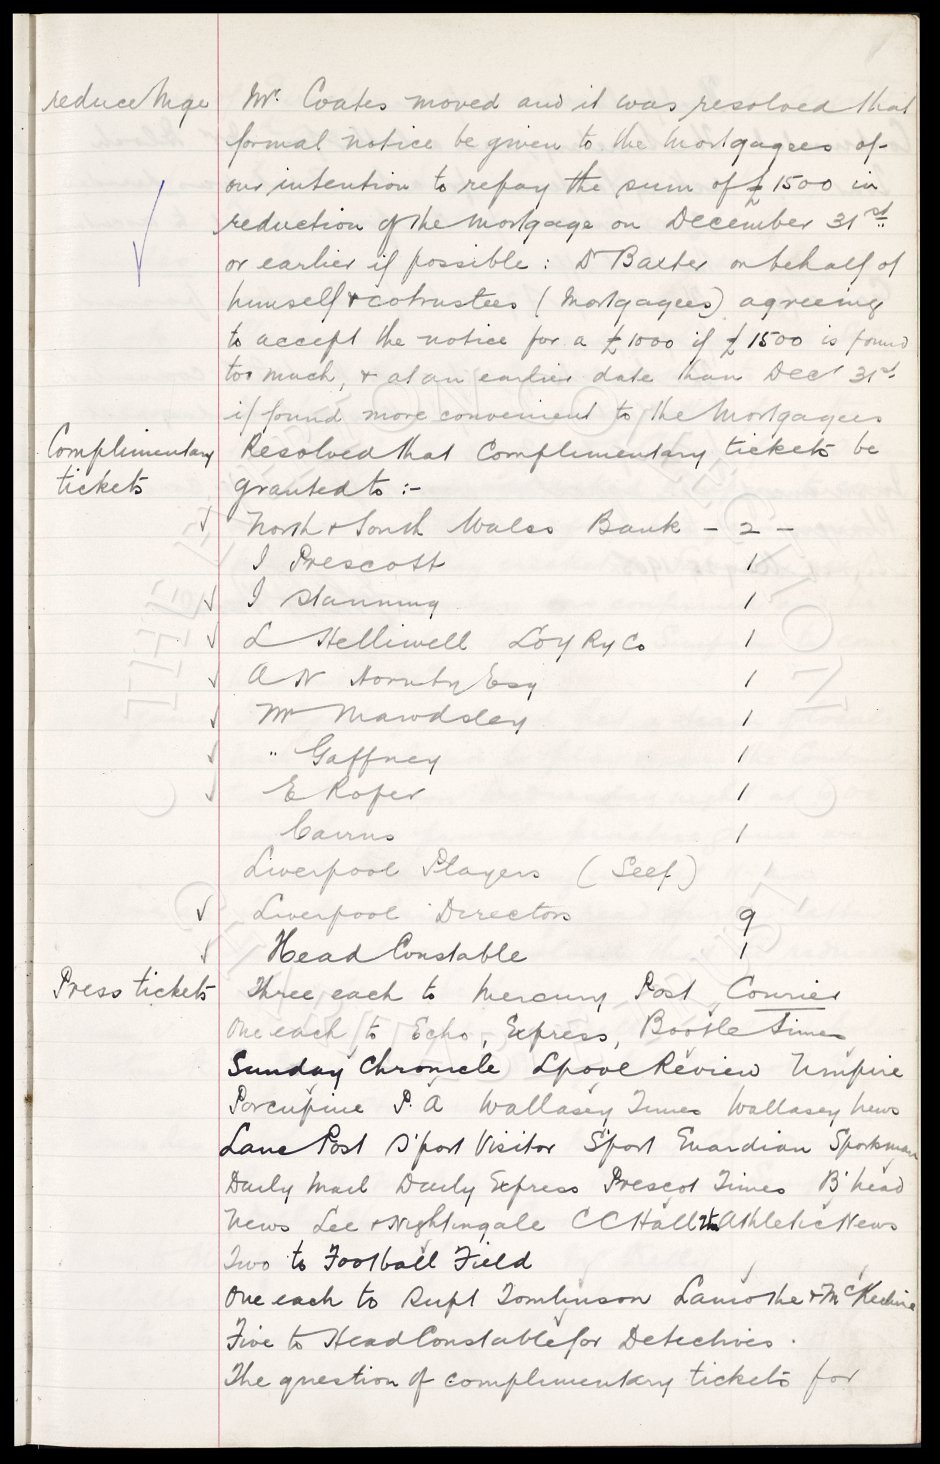 reduce Mge Mr. Coates moved and it was resolved that
formal notice be given to the Mortgagees of
our intention to repay the sum of £1500 in
reduction of the Mortgage on December 31st
or earlier if possible : Dr Baxter on behalf of
himself & cotrustees (Mortgagees) agreeing
to accept the notice for a £1000 if £1500 is found
too much, & at an earlier date than Dec 31st
if found more convenient to the Mortgagees
Complimentary Resolved that Complimentary tickets be
tickets granted to :-
North & South Wales Bank - 2 -
J Prescott 1
J Stanning 1
L Helliwell L & Y Ry Co 1
A N Hornby Esq 1
Mr Mawdsley 1
" Gaffney 1
E Roper 1
Cairns 1
Liverpool Players (Seef)
Liverpool Directors 9
Head Constable 1
Press tickets Three each to Mercury Post Courier
One each to Echo, Express, Bootle Times
Sunday Chronicle Lpool Review Umpire
Porcupine P. A Wallasey Times Wallasey News
Lanc Post S'port Visitor S'port Guardian Sportsman
Daily Mail Daily Express Prescot Times B'head
News Lee & Nightingale C C Hall Athletic News
Two to Football Field
One each to Supt Tomlinson Lamothe & McKechnie
Five to Head Constable for Detectives.
The question of complimentary tickets for